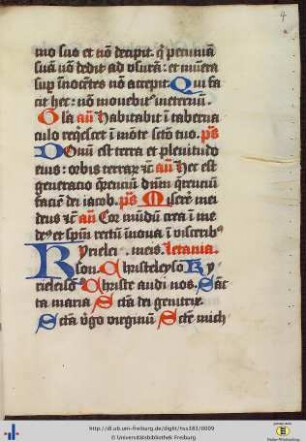 mo suo et nō decipit. q̄ pecuniam
suā nō dedit ad vsurā: et munera
sup īnocētes nō accepit Qui fa
cit hec: nō mouebit̄ ineternū.
Gla añ Habitabit ī taberna
culo req̄escet ī mōte scō tuo. ps
Dom̄ est terra et plenitudo
eius: orbis terrar̄ zc̄ añ Hec est
generatio q̄renciū dn̄m q̄renciū
faciē dei iacob. ps Miserē mei
deus zc̄ añ Cor mūdū crea ī me
deᵍ et sp̄m rectū īnoua ī viscerib̄
Kyrielei. meis. letania.
son. Christeleyso Ky
rieleisō Christe audi nos. Sāc
ta maria Sctā dei genitrix
Sctā v̄go virginū Sctē mich
http://dl.ub.uni-freiburg.de/diglit/hs1281/0009
© Universitätsbibliothek Freiburg